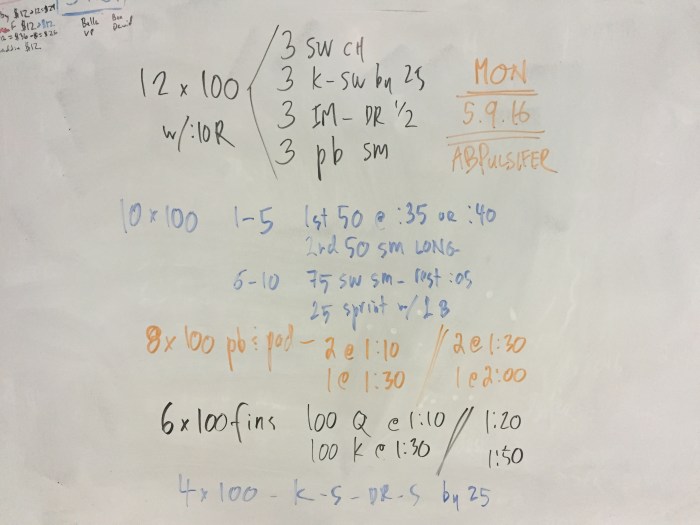 $12
Bella
VP
12 x 100
w/:10R
3 SW CH
3 K-SW by 25
3 IM-DR 1/2
3 pb sm
MON
5.9.16
ABPULSIFER
10 x 100 1-5 1st 50 @ :35 or :40
2nd 50 sm LONG
6-10 75 sw sm - rest :05
25 sprint w/ 1 B
8x 100 pb & pad - 2 @ 1:10 // 2 @ 1:30
1 @ 1:30 1 @ 2:00
6 x 100 fins 100 Q @ 1:10 // 1:20
100 K @ 1:30 1:50
4 x 100 - K-S-DR-S by 25